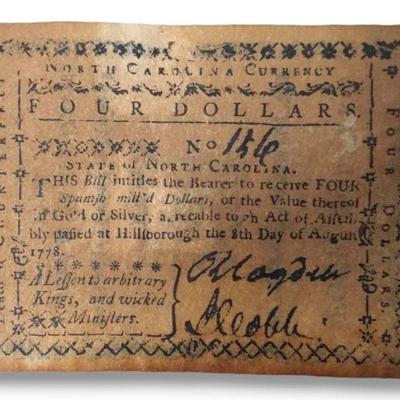 NORTH CAROLINA CURRENCY
FOUR DOLLARS
No 156
STATE of NORTH CAROLINA.
THIS Bill intitles the Bearer to receive FOUR
Spanish mill'd Dollars, or the Value thereof
in Gold or Silver, agreeable to an Act of Assem-
bly passed at Hillsborough the 8th Day of August
1778.
A Lesson to arbitrary
Kings, and wicked
Ministers.
FOUR DOLLARS.